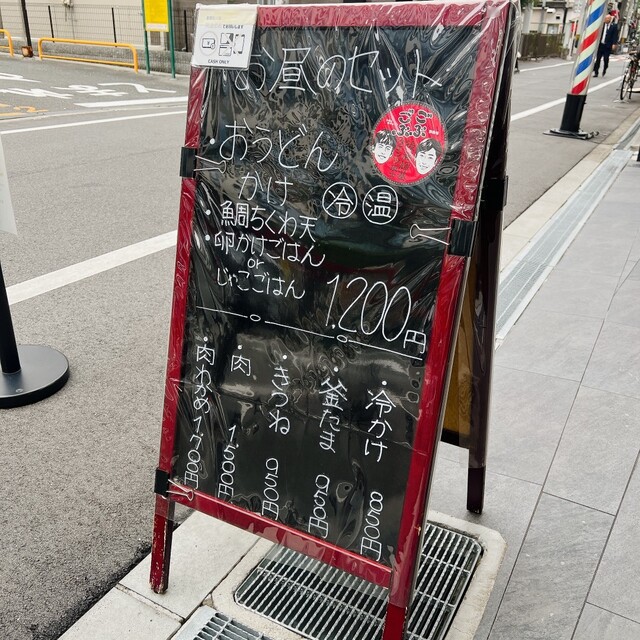 CASH ONLY
お昼のセット
ごご
ぷぷ
・おうどん
かけ
冷 温
・鯛ちくわ天
・卵かけごはん
or
じゃこごはん
1.200円
・冷かけ 850円
・釜たま 950円
・きつね 950円
・肉 1.500円
・肉わかめ 1.700円